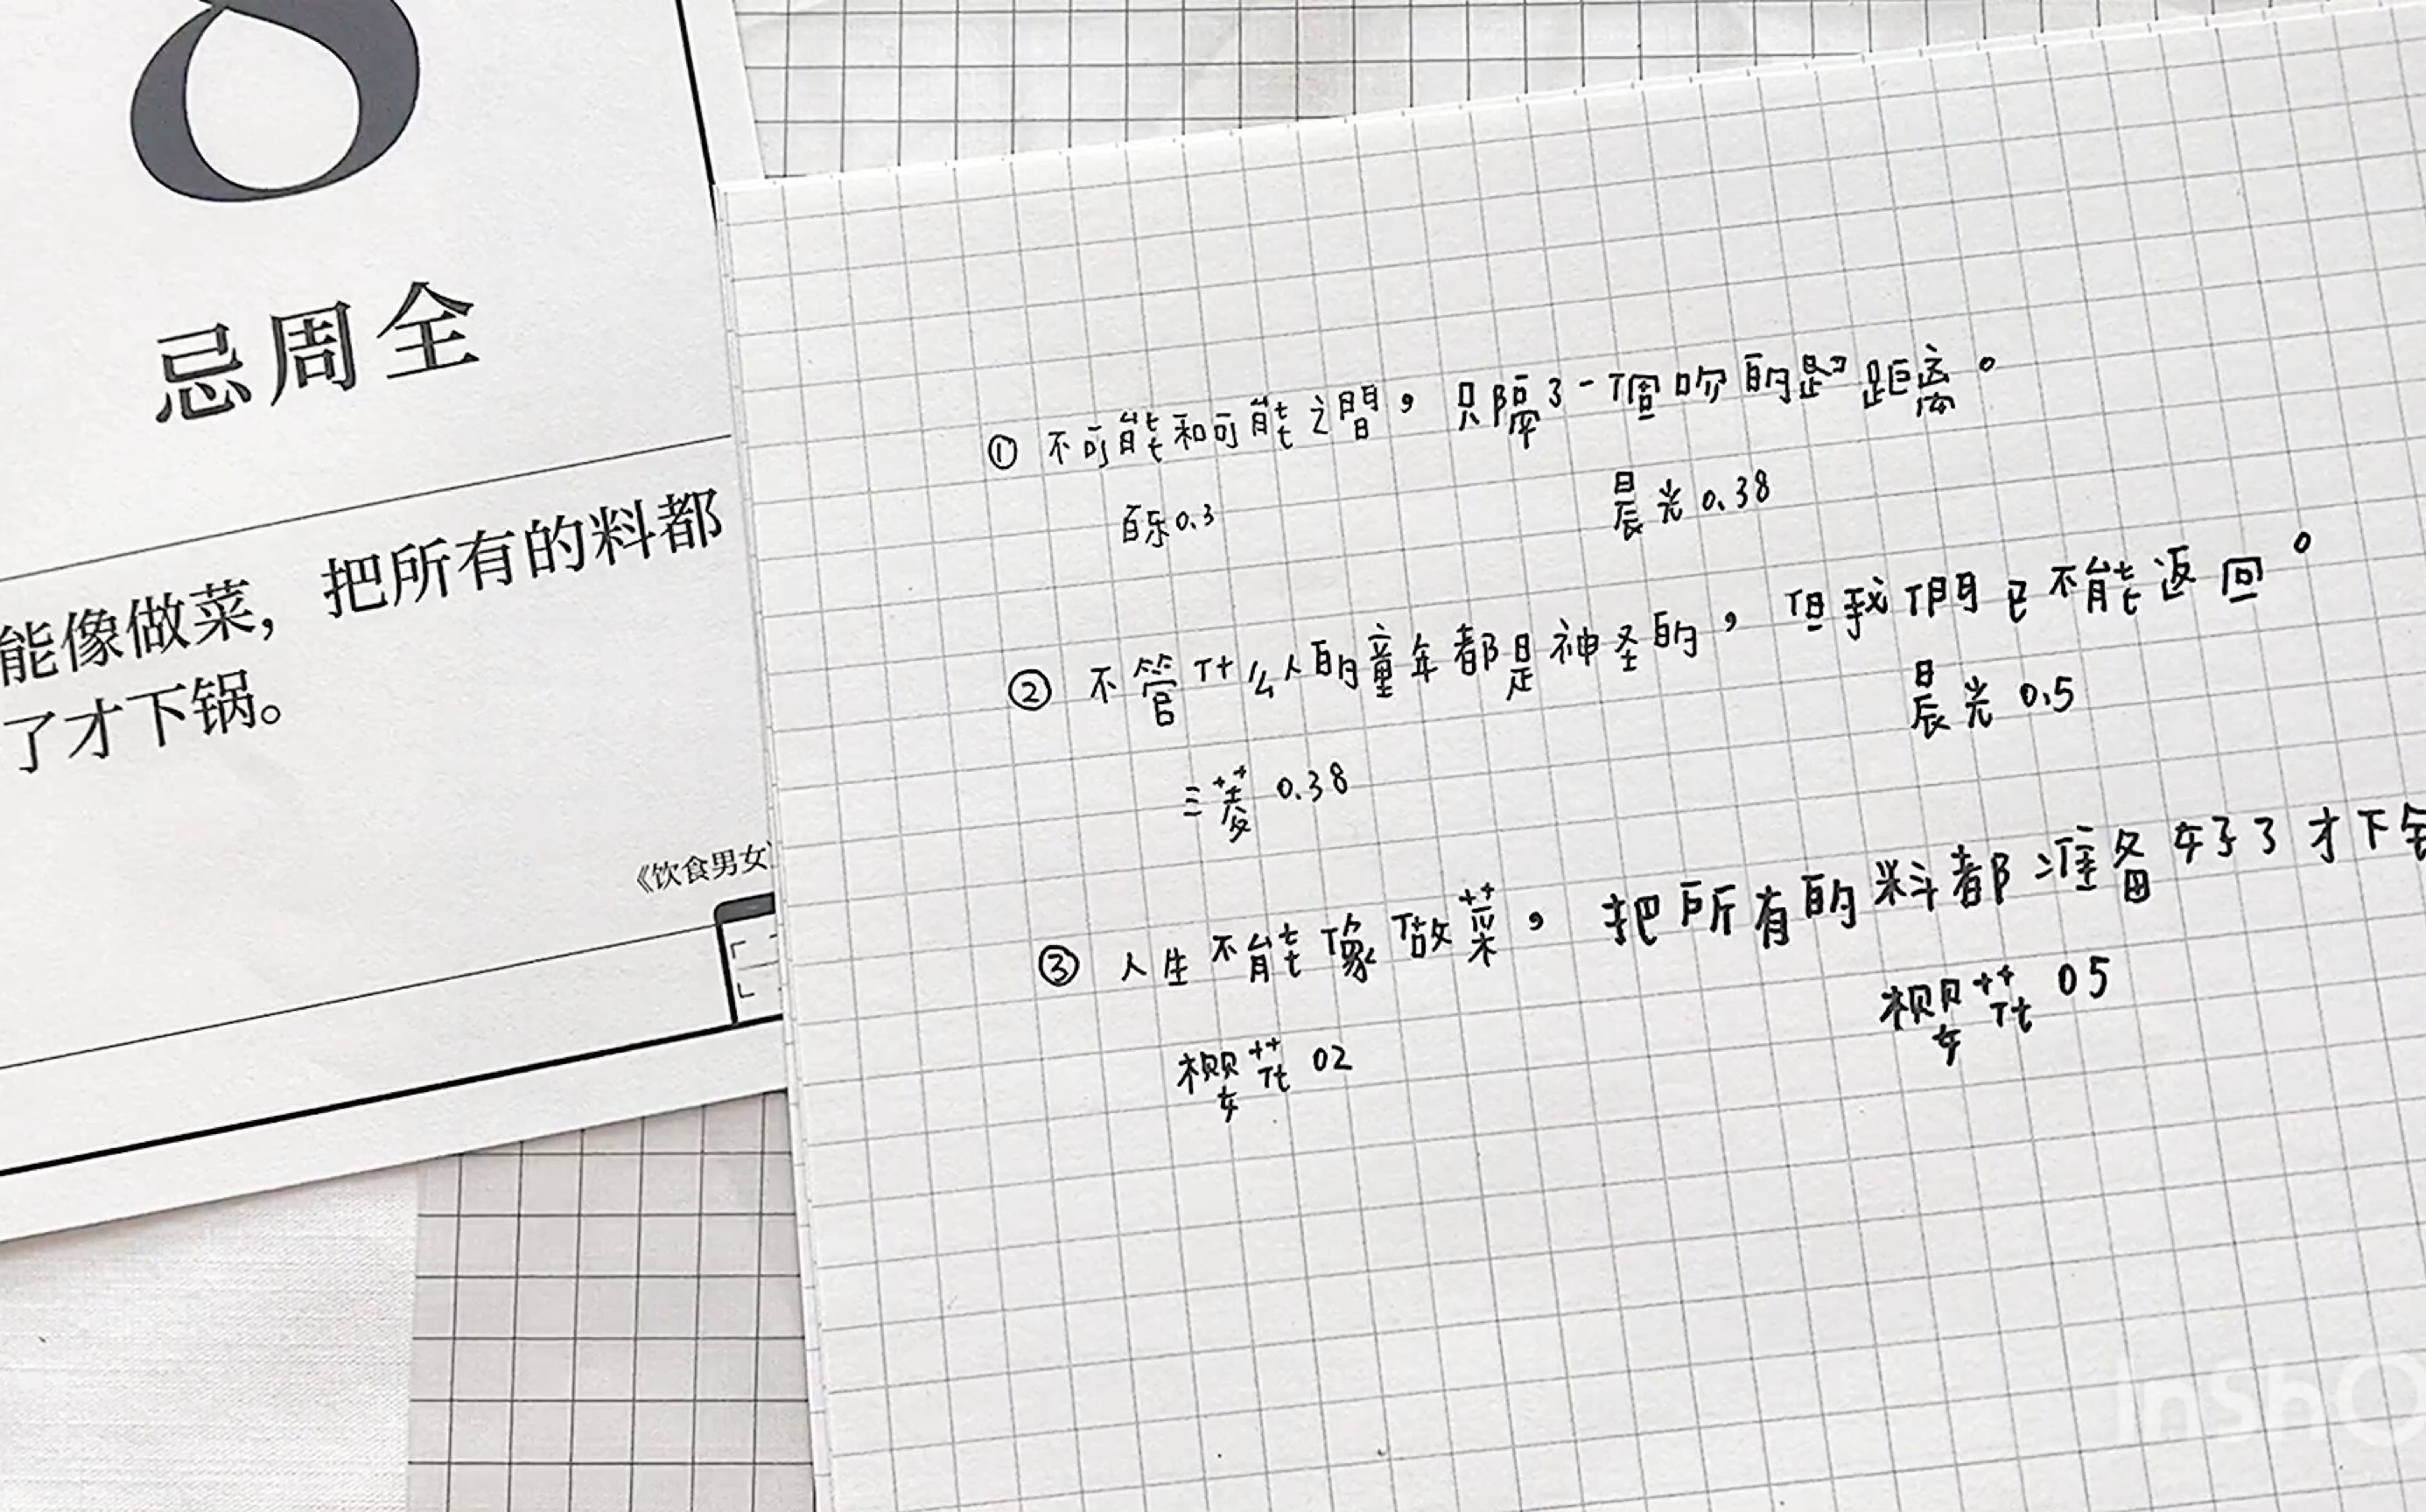 8
忌周全
能像做菜，把所有的料都
了才下锅。
《饮食男女》
① 不可能和可能之間，只隔了一個吻的距離。
百乐0.3
晨光0.38
② 不管什么人的童年都是神圣的，但我們已不能返回。
三菱 0.38
晨光 0.5
③ 人生不能像做菜，把所有的料都准备好了才下
樱花 02
樱花 05
InShO